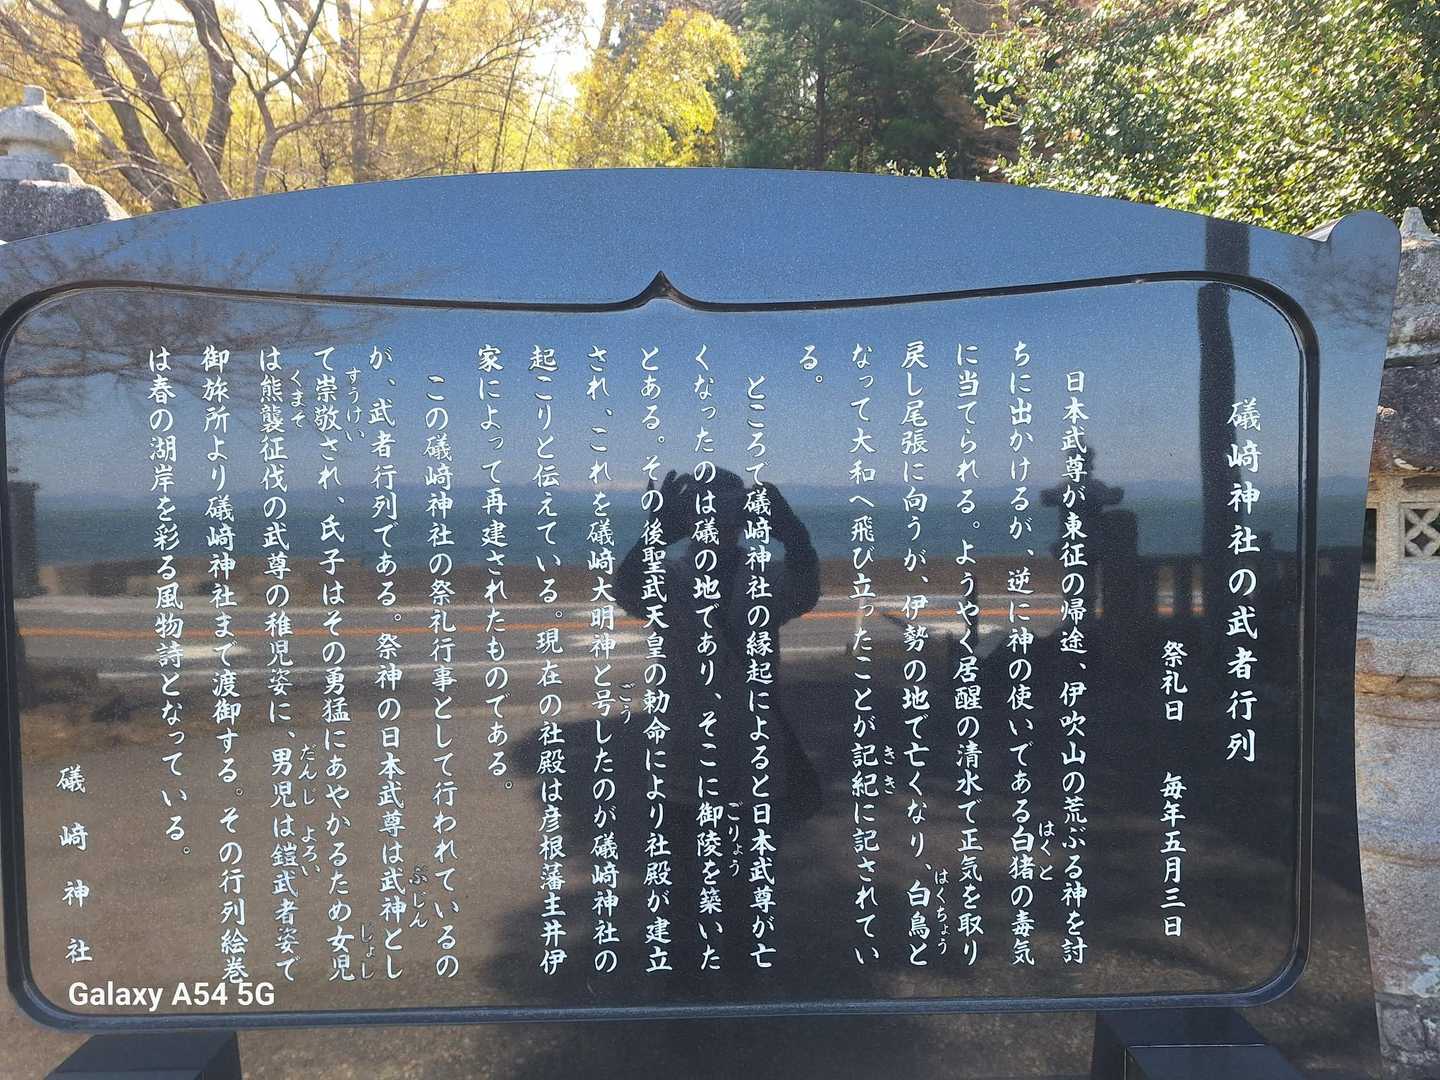 礒﨑神社の武者行列
祭礼日　毎年五月三日
日本武尊が東征の帰途、伊吹山の荒ぶる神を討
ちに出かけるが、逆に神の使いである白猪の毒気
はくと
に当てられる。ようやく居醒の清水で正気を取り
戻し尾張に向うが、伊勢の地で亡くなり、白鳥と
はくちょう
なって大和へ飛び立ったことが記紀に記されてい
きき
る。
ところで礒﨑神社の縁起によると日本武尊が亡
くなったのは礒の地であり、そこに御陵を築いた
ごりょう
とある。その後聖武天皇の勅命により社殿が建立
され、これを礒﨑大明神と号したのが礒﨑神社の
ごう
起こりと伝えている。現在の社殿は彦根藩主井伊
家によって再建されたものである。
この礒﨑神社の祭礼行事として行われているの
が、武者行列である。祭神の日本武尊は武神とし
ぶじん
て崇敬され、氏子はその勇猛にあやかるため女児
すうけい
じょし
は熊襲征伐の武尊の稚児姿に、男児は鎧武者姿で
くまそ
だんし
よろい
御旅所より礒﨑神社まで渡御する。その行列絵巻
は春の湖岸を彩る風物詩となっている。
礒﨑神社
Galaxy A54 5G